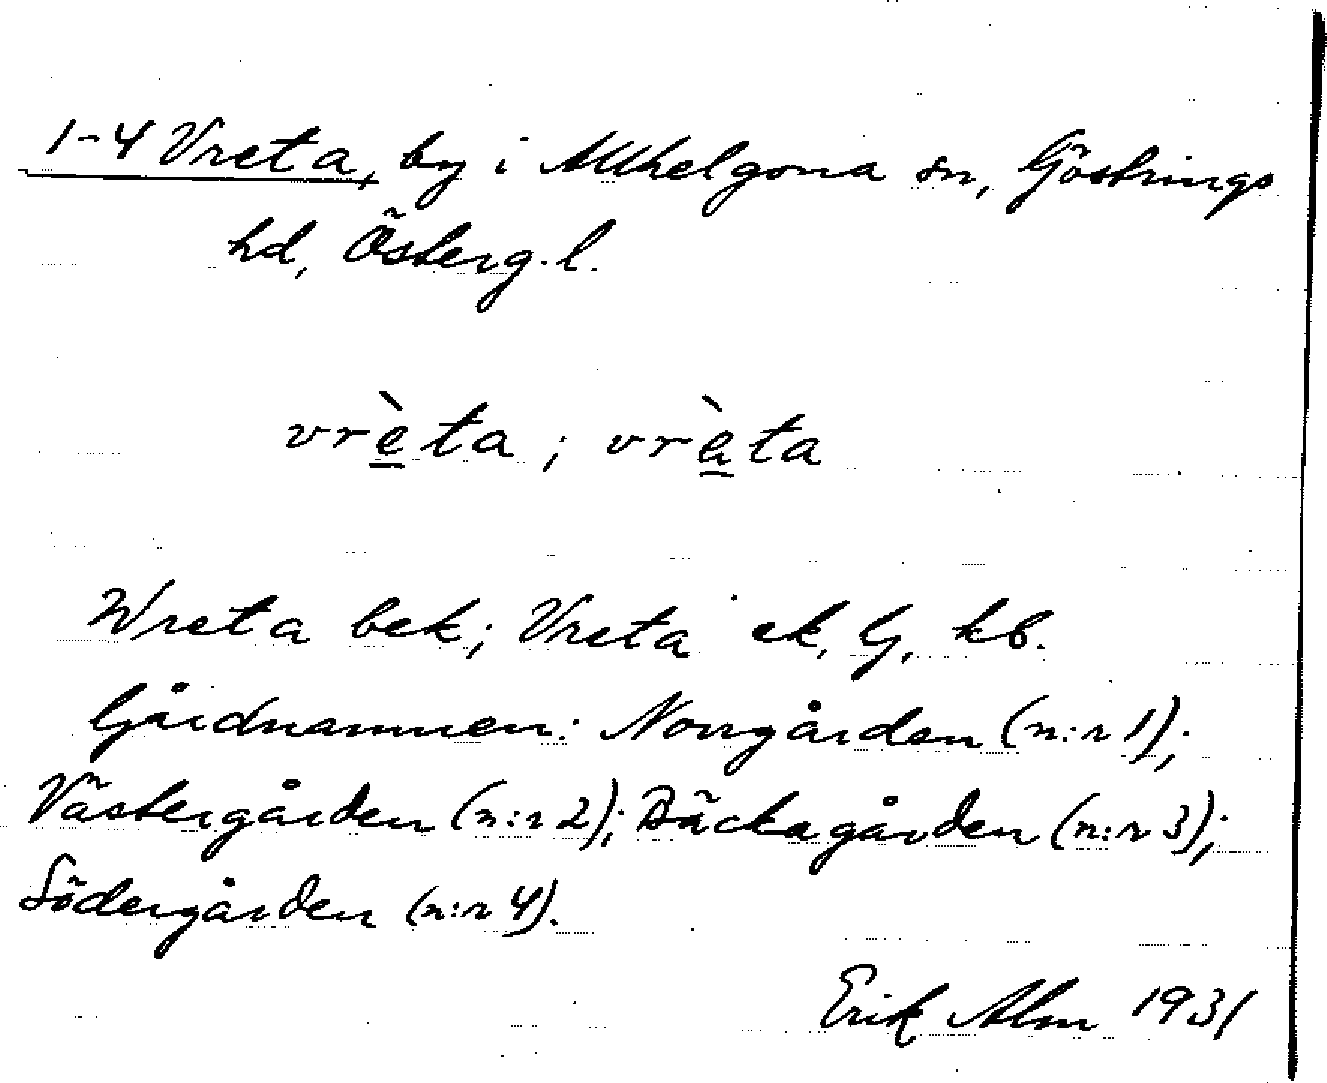 1-4 Vreta, by i Allhelgona sn, Göstrings
hd, Österg.l.
vrèta ; vràta
Wreta bek; Vreta ek, G, kb.
Gårdnamnen: Norrgården (n:r 1);
Västergården (n:r 2); Bäckagården (n:r 3);
Södergården (n:r 4).
Erik Alm 1931